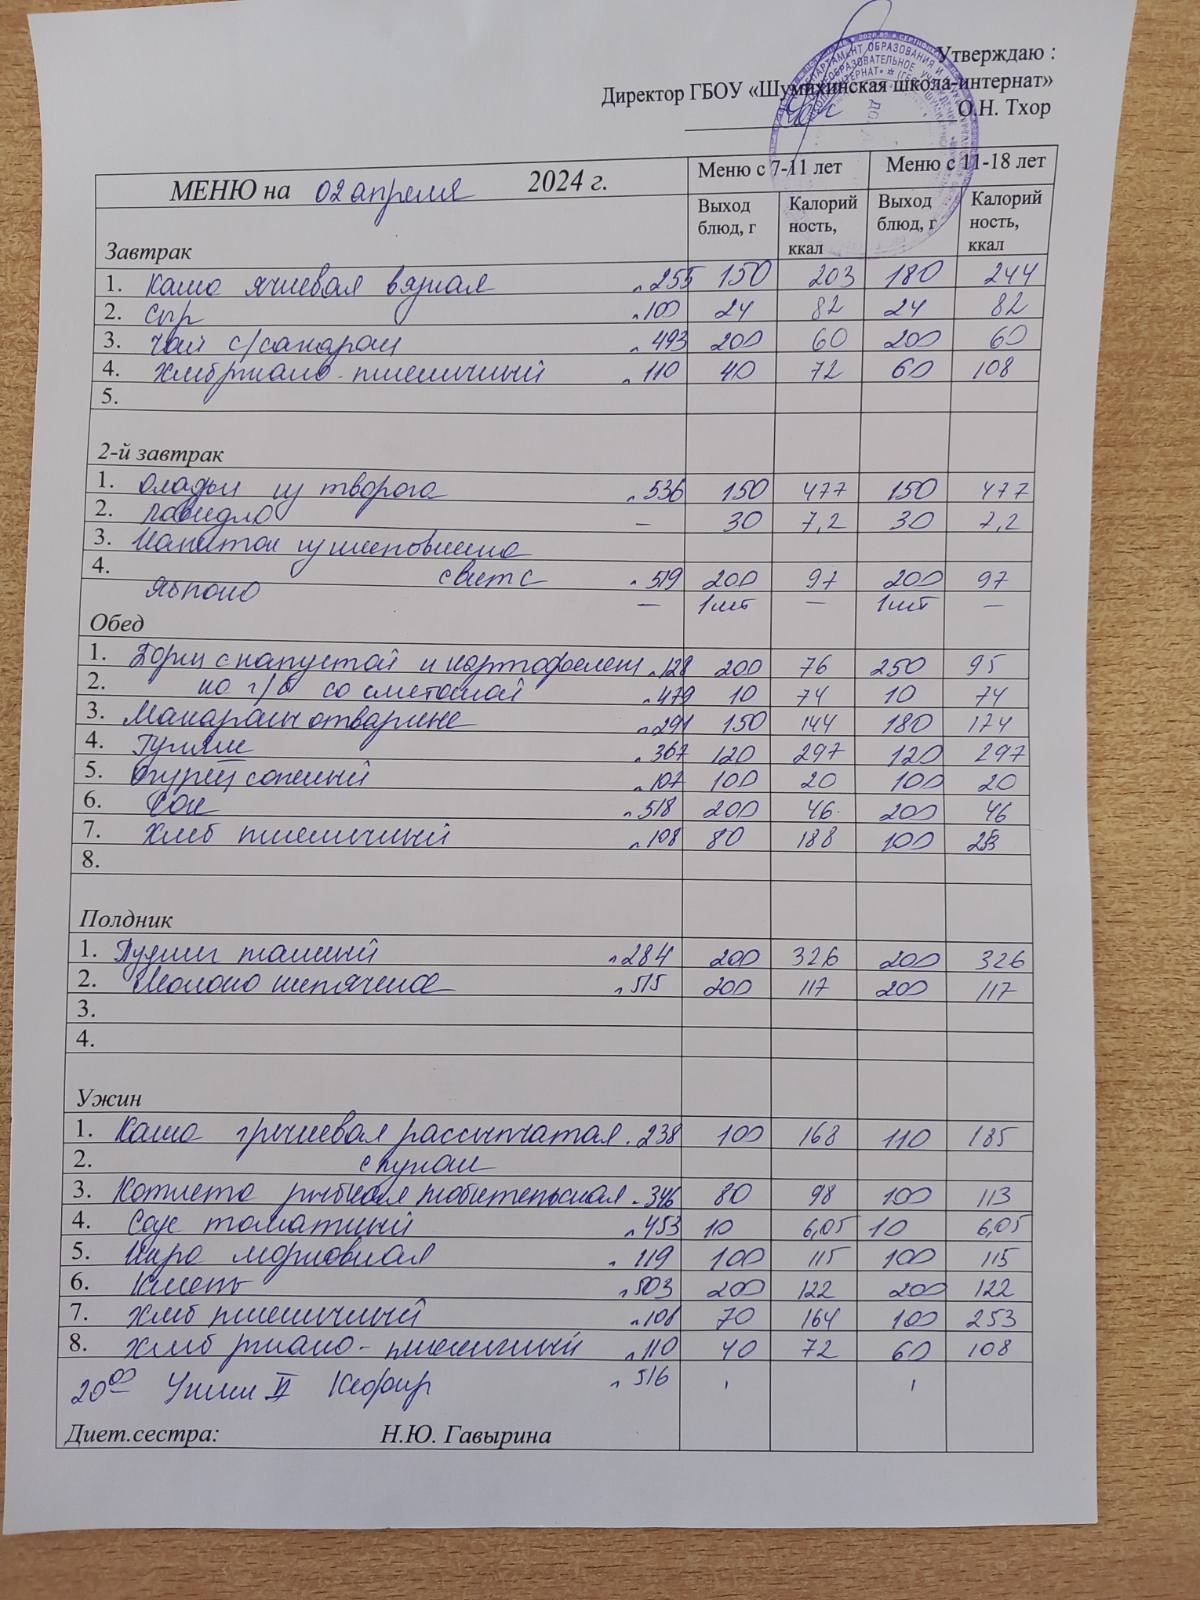 Утверждаю :
Директор ГБОУ «Шумихинская школа-интернат»
О.Н. Тхор
МЕНЮ на 02 апреля 2024 г. Меню с 7-11 лет Меню с 11-18 лет
Выход блюд, г Калорий ность, ккал Выход блюд, г Калорий ность, ккал
Завтрак
1. Каша ячневая вязкая л.255 150 203 180 244
2. Сыр л.100 24 82 24 82
3. Чай с/сахаром л.493 200 60 200 60
4. Хлеб ржано-пшеничный л.110 40 72 60 108
5.
2-й завтрак
1. Оладьи из творога л.536 150 477 150 477
2. Повидло — 30 7,2 30 7,2
3. Напиток из шиповника
4. с вит с л.519 200 97 200 97
Яблоко — 1шт — 1шт —
Обед
1. Борщ с капустой и картофелем л.128 200 76 250 95
2. на г/б со сметаной л.479 10 74 10 74
3. Макароны отварные л.291 150 144 180 174
4. Гуляш л.367 120 297 120 297
5. Огурец соленый л.107 100 20 100 20
6. Сок л.518 200 46 200 46
7. Хлеб пшеничный л.108 80 188 100
8.
Полдник
1. Пудинг манный л.284 200 326 200 326
2. Молоко кипяченое л.515 200 117 200 117
3.
4.
Ужин
1. Каша гречневая рассыпчатая л.238 100 168 110 185
2. с луком
3. Котлета рыбная любительская л.346 80 98 100 113
4. Соус томатный л.453 10 6,05 10 6,05
5. Икра морковная л.119 100 115 100 115
6. Кисель л.503 200 122 200 122
7. Хлеб пшеничный л.108 70 164 100 253
8. Хлеб ржано-пшеничный л.110 40 72 60 108
20⁰⁰ Ужин II Кефир л.516
Диет.сестра: Н.Ю. Гавырина